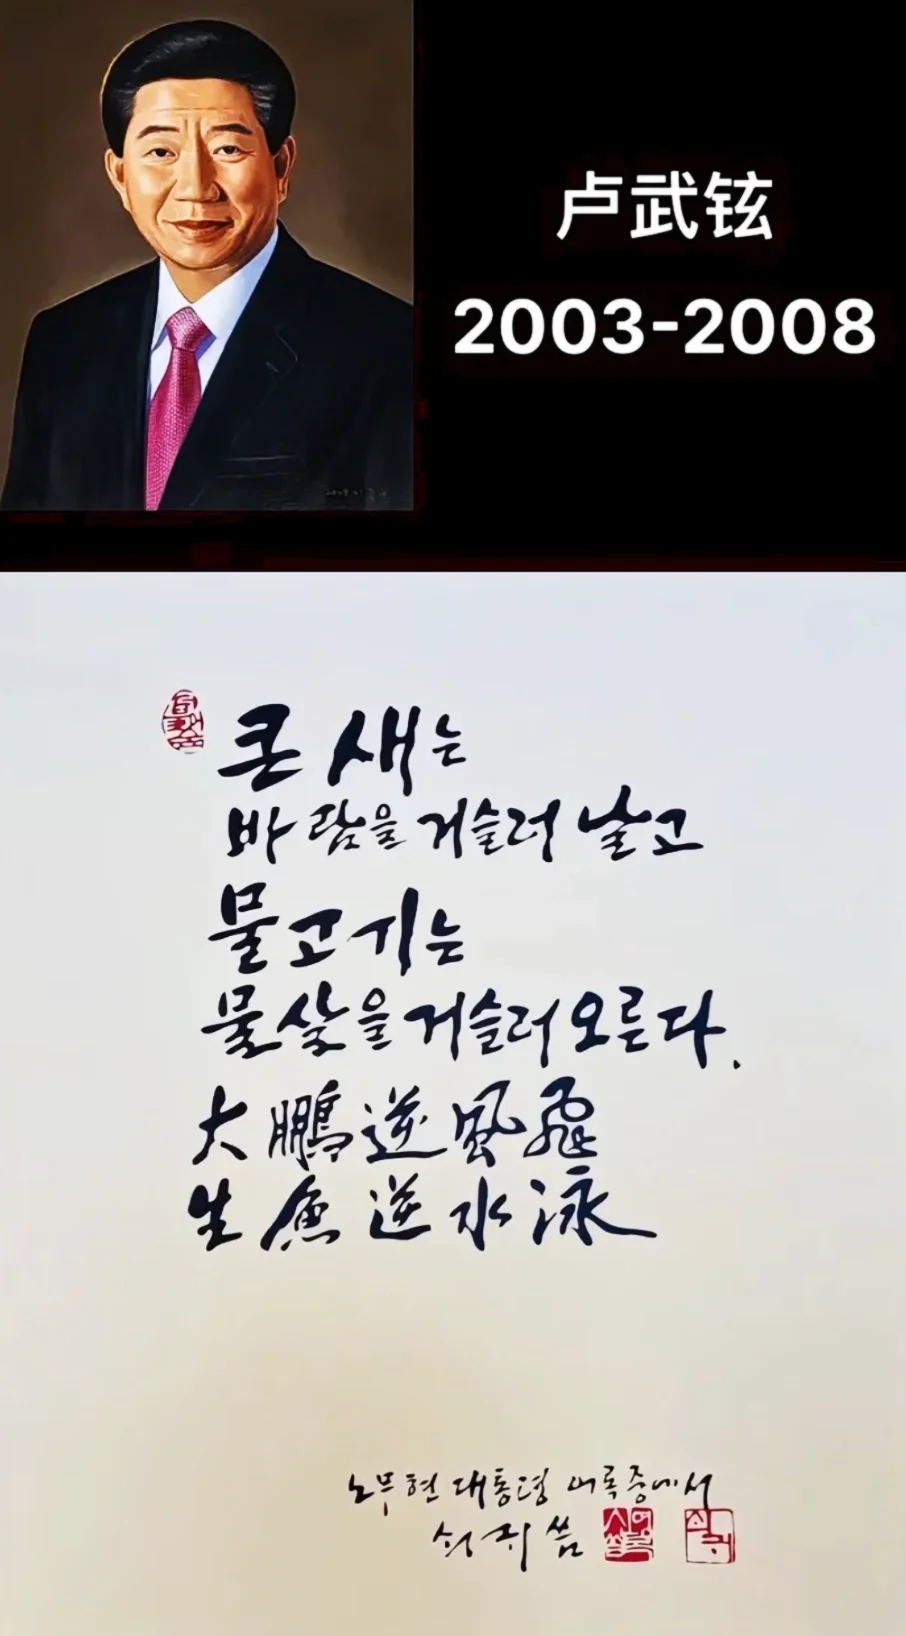 卢武铉
2003-2008
큰 새는
바람을 거슬러 날고
물고기는
물살을 거슬러 오른다.
大鵬逆風飛
生魚逆水泳
노무현 대통령 어록중에서
쉬귀 씀